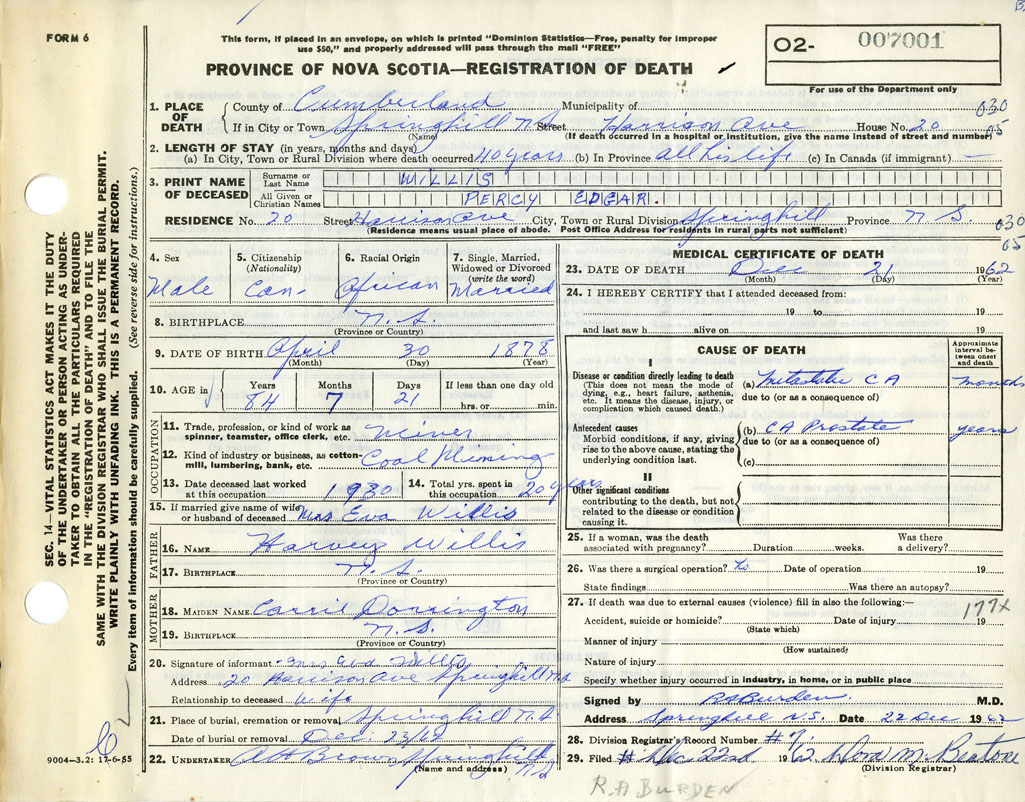 FORM 6
This form, if placed in an envelope, on which is printed "Dominion Statistics—Free, penalty for improper
use $50," and properly addressed will pass through the mail "FREE"
PROVINCE OF NOVA SCOTIA—REGISTRATION OF DEATH
O2- 007001
For use of the Department only
1. PLACE OF DEATH { County of Cumberland Municipality of 030
If in City or Town Springhill N.S. Street Harrison Ave House No. 20 05
(Name) (If death occurred in a hospital or institution, give the name instead of street and number)
2. LENGTH OF STAY (in years, months and days)
(a) In City, Town or Rural Division where death occurred 40 years (b) In Province all his life (c) In Canada (if immigrant) —
3. PRINT NAME OF DECEASED
Surname or Last Name WILLIS
All Given or Christian Names PERCY EDGAR.
RESIDENCE No. 20 Street Harrison Ave City, Town or Rural Division Springhill Province N S. 030
(Residence means usual place of abode. Post Office Address for residents in rural parts not sufficient) 05
4. Sex Male
5. Citizenship (Nationality) Can
6. Racial Origin African
7. Single, Married, Widowed or Divorced (write the word) Married
8. BIRTHPLACE N.S.
(Province or Country)
9. DATE OF BIRTH April 30 1878
(Month) (Day) (Year)
10. AGE in Years 84 Months 7 Days 21 If less than one day old hrs. or min.
OCCUPATION
11. Trade, profession, or kind of work as spinner, teamster, office clerk, etc. Miner
12. Kind of industry or business, as cotton-mill, lumbering, bank, etc. Coal Mining
13. Date deceased last worked at this occupation 1930
14. Total yrs. spent in this occupation 20 years
15. If married give name of wife or husband of deceased Mrs Eva Willis
FATHER
16. NAME Harvey Willis
17. BIRTHPLACE N.S.
(Province or Country)
MOTHER
18. MAIDEN NAME Carrie Dorrington
19. BIRTHPLACE N.S.
(Province or Country)
20. Signature of informant Mrs Eva Willis
Address 20 Harrison Ave Springhill N.S
Relationship to deceased Wife
21. Place of burial, cremation or removal Springhill N.S
Date of burial or removal Dec. 23/62
22. UNDERTAKER A H Brown Springhill N.S
(Name and address)
MEDICAL CERTIFICATE OF DEATH
23. DATE OF DEATH Dec 21 1962
(Month) (Day) (Year)
24. I HEREBY CERTIFY that I attended deceased from:
19 to 19
and last saw h alive on 19
CAUSE OF DEATH
Approximate interval between onset and death
I
Disease or condition directly leading to death
(This does not mean the mode of dying, e.g., heart failure, asthenia, etc. It means the disease, injury, or complication which caused death.)
(a) Metastatic CA months
due to (or as a consequence of)
Antecedent causes
Morbid conditions, if any, giving rise to the above cause, stating the underlying condition last.
(b) CA Prostate years
due to (or as a consequence of)
(c)
II
Other significant conditions
contributing to the death, but not related to the disease or condition causing it.
25. If a woman, was the death associated with pregnancy? Duration weeks. Was there a delivery?
26. Was there a surgical operation? No Date of operation 19
State findings Was there an autopsy?
27. If death was due to external causes (violence) fill in also the following:—
177X
Accident, suicide or homicide? Date of injury 19
(State which)
Manner of injury
(How sustained)
Nature of injury
Specify whether injury occurred in industry, in home, or in public place
Signed by RA Burden M.D.
Address Springhill N.S. Date 22 Dec 1962
28. Division Registrar's Record Number # 71
29. Filed # Dec 22nd 1962 Dora M.
(Division Registrar)
R.A BURDEN
SEC. 14—VITAL STATISTICS ACT MAKES IT THE DUTY
OF THE UNDERTAKER OR PERSON ACTING AS UNDER-
TAKER TO OBTAIN ALL THE PARTICULARS REQUIRED
IN THE "REGISTRATION OF DEATH" AND TO FILE THE
SAME WITH THE DIVISION REGISTRAR WHO SHALL ISSUE THE BURIAL PERMIT.
WRITE PLAINLY WITH UNFADING INK. THIS IS A PERMANENT RECORD.
Every item of information should be carefully supplied. (See reverse side for instructions.)
9004—3.2: 17-6-55